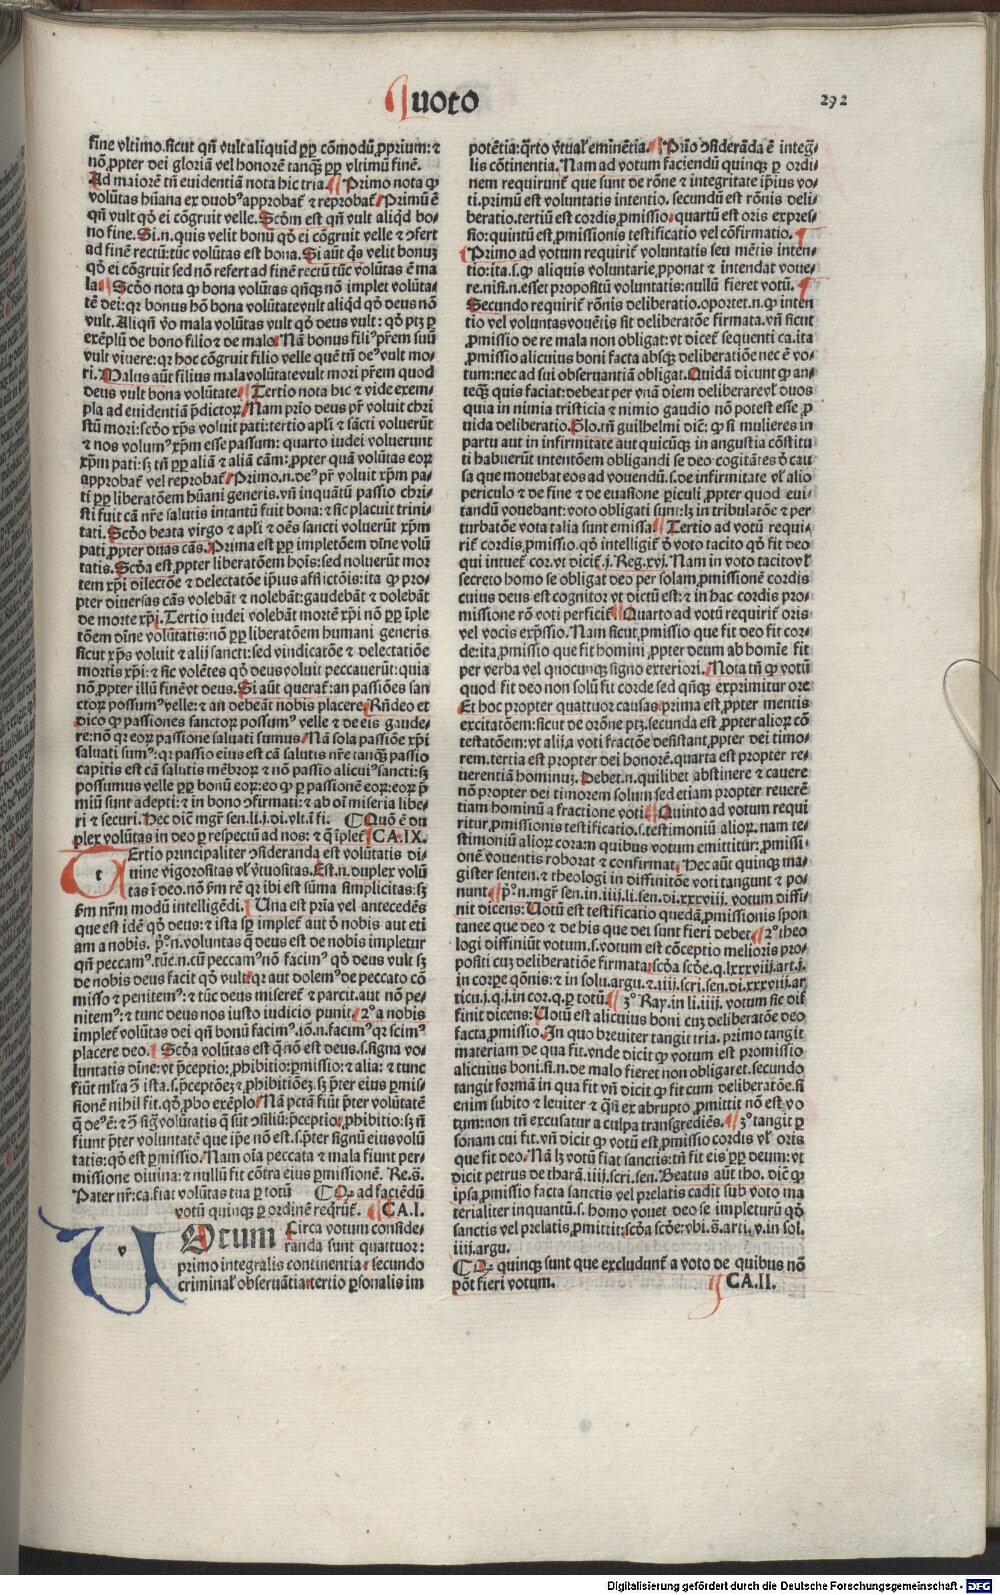 uoto
292
fine vltimo. sicut qñ vult aliquid ꝓp cõmodũ ꝓprium: ⁊
nõ ꝓpter dei gloriã vel honorẽ tanqꝫ ꝓp vltimũ finẽ.
Ad maiorẽ tñ euidentiã nota hic tria. Primo nota ꝙ
volũtas hũana ex duobꝰ approbat̃ ⁊ reprobat̃. Primũ ẽ
qñ vult qđ ei cõgruit velle. Scđm est qñ vult aliqđ bo-
no fine. Si.n. quis velit bonũ qđ ei cõgruit velle ⁊ ↄfert
ad finẽ rectũ: tũc volũtas est bona. Si aũt qͥs velit bonuꝫ
qđ ei cõgruit sed nõ refert ad finẽ rectũ tũc volũtas ẽ ma
la. Scđo nota ꝙ bona volũtas qñqꝫ nõ implet volũta-
tẽ dei: qꝛ bonus hõ bona volũtate vult aliqđ qđ deus nõ
vult. Aliqñ ṽo mala volũtas vult qđ deus vult: qđ ptꝫ ꝑ
exẽplũ de bono filio ⁊ de malo. Nã bonus filiꝰ pr̃em suũ
vult viuere: qꝛ hoc cõgruit filio velle quẽ tñ deꝰ vult mo-
ri. Malus aũt filius mala volũtate vult mori pr̃em quod
deus vult bona volũtate. Tertio nota hic ⁊ vide exem-
pla ad euidentiã p̃dictoꝝ. Nam prĩo deus pr̃ voluit chri
stũ mori: scđo xp̃s voluit pati: tertio apl̃i ⁊ sãcti voluerũt
⁊ nos volumꝰ xp̃m esse passum: quarto iudei voluerunt
xp̃m pati: sꝫ tñ ꝓp aliã ⁊ aliã cãm: ꝓpter quã volũtas eoꝝ
approbat̃ vel reprobat̃. Primo.n. deꝰ pr̃ voluit xp̃m pa-
ti ꝓp liberatõem hũani generis. vñ inquãtũ passio chri-
sti fuit cã nr̃e salutis intantũ fuit bona: ⁊ sic placuit trini-
tati. Scđo beata virgo ⁊ apl̃i ⁊ oẽs sancti voluerũt xp̃m
pati ꝓpter duas cãs. Prima est ꝓp impletõem diñe volũ
tatis. Scđa est ꝓpter liberatõem hoĩs: sed noluerũt mor
tem xp̃i dilectõe ⁊ delectatõe ipsius afflictõis: ita ꝙ pro-
pter diuersas cãs volebãt ⁊ nolebãt: gaudebãt ⁊ dolebãt
de morte xp̃i. Tertio iudei volebãt mortẽ xp̃i nõ ꝓp ĩple
tõem diñe volũtatis: nõ ꝓp liberatõem humani generis
sicut xp̃s voluit ⁊ alij sancti: sed vindicatõe ⁊ delectatiõe
mortis xp̃i: ⁊ sic volẽtes qđ deus voluit peccauerũt: quia
nõ ꝓpter illũ finẽ vt deus. Si aũt querat̃: an passiões san
ctoꝝ possumꝰ velle: ⁊ an debeãt nobis placere. Rñdeo et
dico ꝙ passiones sanctoꝝ possumꝰ velle ⁊ de eis gaude-
re: nõ qꝛ eoꝝ passione saluati sumus. Nã sola passiõe xp̃i
saluati sumꝰ: qꝛ passio eius est cã salutis nr̃e tanqꝫ passio
capitis est cã salutis mẽbroꝝ ⁊ nõ passio alicuiꝰ sancti: sꝫ
possumus velle ꝓp bonũ eoꝝ: eo ꝙ ꝑ passionẽ eoꝝ: eoꝝ p̃
miũ sunt adepti: ⁊ in bono ↄfirmati: ⁊ ab oĩ miseria libe-
ri ⁊ securi. Hec diẽ mgr̃ sen.li.j.di.vlt.ĩ fi. Quõ ẽ du
plex volũtas in deo ꝑ respectũ ad nos: ⁊ q̃ ĩplet̃. CA.IX.
Tertio principaliter ↄsideranda est volũtatis di-
uine vigorositas vl̃ ṽtuositas. Est.n. duplex volũ
tas ĩ deo. nõ fm̃ rẽ qꝛ ibi est sũma simplicitas: sꝫ
fm̃ nr̃m modũ intelligẽdi. Una est prĩa vel antecedẽs
que est idẽ qđ deus: ⁊ ista sp̃ implet̃ aut đ nobis aut eti
am a nobis. pͦ.n. voluntas q̃ deus est de nobis impletur
qñ peccamꝰ. tũc.n. cũ peccamꝰ nõ facimꝰ qđ deus vult sꝫ
de nobis deus facit qđ vult: qꝛ aut dolemꝰ de peccato cõ
misso ⁊ penitemꝰ: ⁊ tũc deus miseret̃ ⁊ parcit. aut nõ pe-
nitemꝰ: ⁊ tunc deus nos iusto iudicio punit. 2ͦ a nobis
implet̃ volũtas dei qñ bonũ facimꝰ. iõ.n. facimꝰ qꝛ scimꝰ
placere deo. Scđa volũtas est q̃ nõ est deus. s. signa vo-
luntatis diñe: vt p̃ceptio: ꝓhibitio: ꝑmissio: ⁊ alia: ⁊ tunc
fiũt ml̃ta ↄ̃ ista. s. p̃ceptõeꝫ ⁊ ꝓhibitiõeꝫ. sꝫ p̃ter eius ꝑmis-
sionẽ nihil fit. qđ ꝓbo exẽplo. Nã pctã fiũt p̃ter volũtatẽ
q̃ deꝰ ẽ: ⁊ ↄ̃ sig̃ volũtatis q̃ sũt ↄsiliũ: p̃ceptio: ꝓhibitio: sꝫ ñ
fiunt p̃ter voluntatẽ que ip̃e nõ est. s. p̃ter signũ eius volũ
tatis: qđ est ꝑmissio. Nam oĩa peccata ⁊ mala fiunt per-
missione diuina: ⁊ nullũ fit cõtra eius ꝑmissionẽ. Re.s̃.
Pater nr̃: ca. fiat volũtas tua ꝑ totũ Qꝛ ad faciẽdũ
votũ quinqꝫ ꝑ ordinẽ reqͥrũt̃. CA.I.
UOtum Circa votum conside-
randa sunt quattuor:
primo integralis continentia: secundo
criminal̃ obseruãtia: tertio ꝑsonalis im
potẽtia: qͣrto ṽtual̃ eminẽtia. Prĩo ↄsiderãda ẽ integ̃-
lis cõtinentia. Nam ad votum faciendũ quinqꝫ ꝑ ordi
nem requirunt̃ que sunt de rõne ⁊ integritate ip̃ius vo-
ti. primũ est voluntatis intentio. secundũ est rõnis deli-
beratio. tertiũ est cordis ꝓmissio. quartũ est oris expres-
sio: quintũ est ꝓmissionis testificatio vel cõfirmatio.
Primo ad votum requirit̃ voluntatis seu mẽtis inten-
tio: ita.s. ꝙ aliquis voluntarie ꝓponat ⁊ intendat voue-
re. nisi.n. esset propositũ voluntatis: nullũ fieret votũ.
Secundo requirit̃ rõnis deliberatio. oportet.n. ꝙ inten
tio vel voluntas vouẽtis sit deliberatõe firmata. vñ sicut
ꝓmissio de re mala non obligat: vt dicet̃ sequenti ca. ita
ꝓmissio alicuius boni facta absqꝫ deliberatiõe nec ẽ vo-
tum: nec ad sui obseruantiã obligat. Quidã dicunt ꝙ an-
teqꝫ quis faciat: debeat per vnã diem deliberare vl̃ duos
quia in nimia tristicia ⁊ nimio gaudio nõ potest esse ꝓ
uida deliberatio. Glo. tñ guilhelmi diẽ: ꝙ si mulieres in
partu aut in infirmitate aut quicũqꝫ in angustia cõstitu
ti habuerũt intentõem obligandi se deo cogitãtes đ cau
sa que mouebat eos ad vouendũ. s. de infirmitate vl̃ alio
periculo ⁊ de fine ⁊ de euasione ꝑiculi ꝓpter quod eui-
tandũ vouebant: voto obligati sunt: lꝫ in tribulatõe ⁊ per
turbatõe vota talia sunt emissa. Tertio ad votũ requi-
rit̃ cordis ꝓmissio. qđ intelligit̃ đ voto tacito qđ fit deo
qui intuet̃ cor. vt dicit̃.j.Reg.xvj. Nam in voto tacito vl̃
secreto homo se obligat deo per solam ꝓmissionẽ cordis
cuius deus est cognitor vt dictũ est: ⁊ in hac cordis pro-
missione rõ voti perficit̃. Quarto ad votũ requirit̃ oris
vel vocis exp̃ssio. Nam sicut ꝓmissio que fit deo fit cor-
de: ita ꝓmissio que fit homini ꝓpter deum ab homĩe fit
per verba vel quocunqꝫ signo exteriori. Nota tñ ꝙ votũ
quod fit deo non solũ fit corde sed qñqꝫ exprimitur ore
Et hoc propter quattuor causas. prima est ꝓpter mentis
excitatõem: sicut de orõne ptꝫ. secunda est ꝓpter alioꝝ cõ
testatõem: vt alij a voti fractõe desistant ꝓpter dei timo-
rem. tertia est propter dei honorẽ. quarta est propter re
uerentiã hominuꝫ. Debet.n. quilibet abstinere ⁊ cauere
nõ propter dei timorem solum sed etiam propter reuerẽ
tiam hominũ a fractione voti. Quinto ad votum requi
ritur ꝓmissionis testificatio. s. testimoniũ alioꝝ. nam te-
stimoniũ alioꝝ coram quibus votum emittitur: ꝓmissi-
onẽ vouentis roborat ⁊ confirmat. Hec aũt quinqꝫ ma-
gister senten. ⁊ theologi in diffinitõe voti tangunt ⁊ po-
nunt. pͦ.n. mgr̃ sen.in.iiij.li.sen.di.xxxviij. votum diffi-
nit dicens: Uotũ est testificatio quedã ꝓmissionis spon
tanee que deo ⁊ de his que dei sunt fieri debet. 2ͦ theo
logi diffiniũt votum. s. votum est cõceptio melioris pro-
positi cuꝫ deliberatiõe firmata: scđa scđe.q.lxxxviij.art.j.
in corꝑe qõnis: ⁊ in solu.argu.⁊.iiij.scri.sen.di.xxxviij.ar
ticu.j.q.j.in cor.q.ꝑ totũ. 3ͦ Ray. in li.iiij. votum sic dif
finit dicens: Uotũ est alicuius boni cuꝫ deliberatõe deo
facta ꝓmissio. In quo breuiter tangit tria. primo tangit
materiam de qua fit. vnde dicit ꝙ votum est promissio
alicuius boni. si.n. de malo fieret non obligaret. secundo
tangit formã in qua fit vñ dicit ꝙ fit cum deliberatõe. si
enim subito ⁊ leuiter ⁊ q̃si ex abrupto ꝓmittit nõ est vo
tum: non tñ excusatur a culpa transgrediẽs. 3ͦ tangit ꝑ
sonam cui fit. vñ dicit ꝙ votũ est ꝓmissio cordis vl̃ oris
que fit deo. Nã lꝫ votũ fiat sanctis: tñ fit eis ꝓp deum: vt
dicit petrus de tharã.iiij.scri.sen. Beatus aũt tho. diẽ ꝙ
ip̃a ꝓmissio facta sanctis vel prelatis cadit sub voto ma
terialiter inquantũ.s. homo vouet deo se impleturũ qđ
sanctis vel prelatis ꝓmittit: scđa scđe: vbi.s̃.arti.v.in sol.
iiij.argu.
Qꝛ quinqꝫ sunt que excludunt̃ a voto de quibus nõ
põt fieri votum. CA.II.
Digitalisierung gefördert durch die Deutsche Forschungsgemeinschaft - DFG